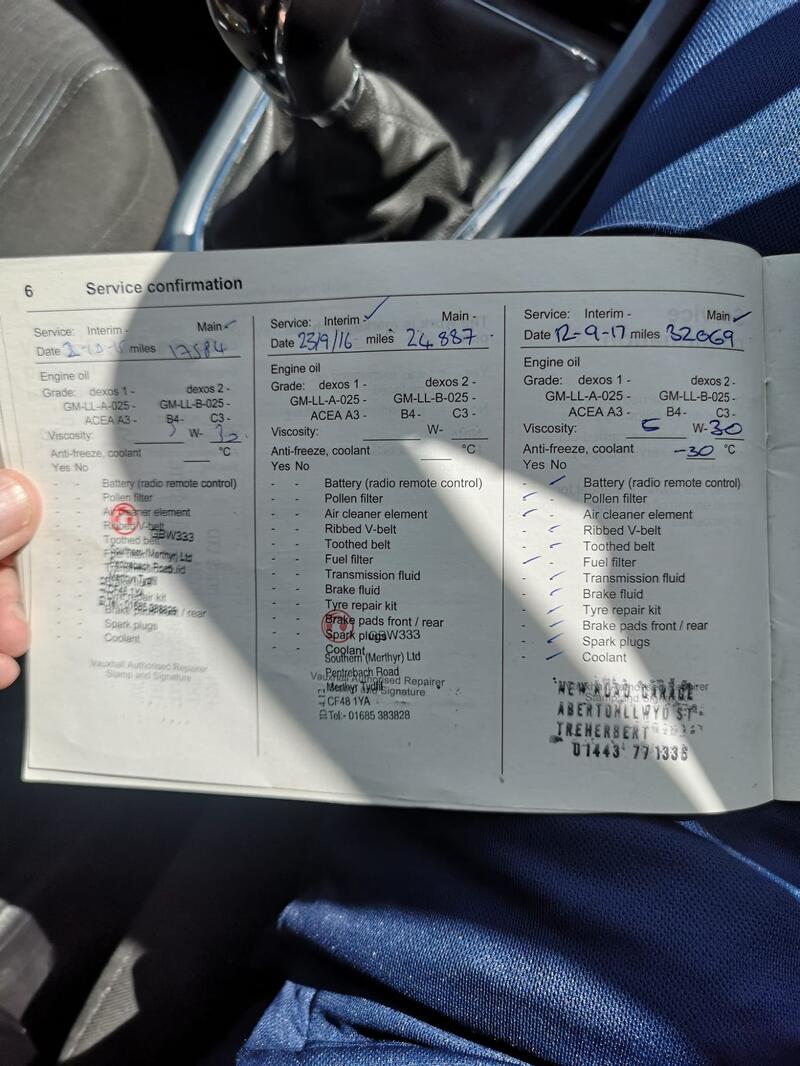 6 Service confirmation
Service: Interim - Main -
Date 2-10-15 miles 17584
Engine oil
Grade: dexos 1 - dexos 2 -
GM-LL-A-025 - GM-LL-B-025 -
ACEA A3 - B4 - C3 -
Viscosity: W- 30
Anti-freeze, coolant °C
Yes No
- - Battery (radio remote control)
- - Pollen filter
- - Air cleaner element
- - Ribbed V-belt
GBW333
- - Toothed belt
Southern (Merthyr) Ltd
Pentrebach Road
Merthyr Tydfil
CF48 1YA
- - Tyre repair kit
Tel:- 01685 383828
- - Brake pads front / rear
- - Spark plugs
- - Coolant
Vauxhall Authorised Repairer
Stamp and Signature
Service: Interim - Main -
Date 23/9/16 miles 24887
Engine oil
Grade: dexos 1 - dexos 2 -
GM-LL-A-025 - GM-LL-B-025 -
ACEA A3 - B4 - C3 -
Viscosity: W-
Anti-freeze, coolant °C
Yes No
- - Battery (radio remote control)
- - Pollen filter
- - Air cleaner element
- - Ribbed V-belt
- - Toothed belt
- - Fuel filter
- - Transmission fluid
- - Brake fluid
- - Tyre repair kit
- - Brake pads front / rear
- - Spark plugs
GBW333
- - Coolant
Southern (Merthyr) Ltd
Pentrebach Road
Vauxhall Authorised Repairer
Merthyr Tydfil
Stamp and Signature
CF48 1YA
Tel:- 01685 383828
Service: Interim - Main -
Date 12-9-17 miles 32069
Engine oil
Grade: dexos 1 - dexos 2 -
GM-LL-A-025 - GM-LL-B-025 -
ACEA A3 - B4 - C3 -
Viscosity: 5 W-30
Anti-freeze, coolant -30 °C
Yes No
- - Battery (radio remote control)
- - Pollen filter
- - Air cleaner element
- - Ribbed V-belt
- - Toothed belt
- - Fuel filter
- - Transmission fluid
- - Brake fluid
- - Tyre repair kit
- - Brake pads front / rear
- - Spark plugs
- - Coolant
NEW ROAD GARAGE
ABERTONLLWYD ST
TREHERBERT
01443 771336